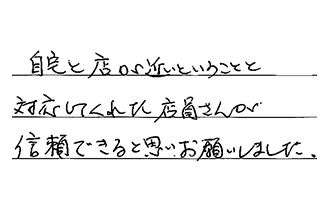 自宅と店が近いということと
対応してくれた店員さんが
信頼できると思いお願いしました。